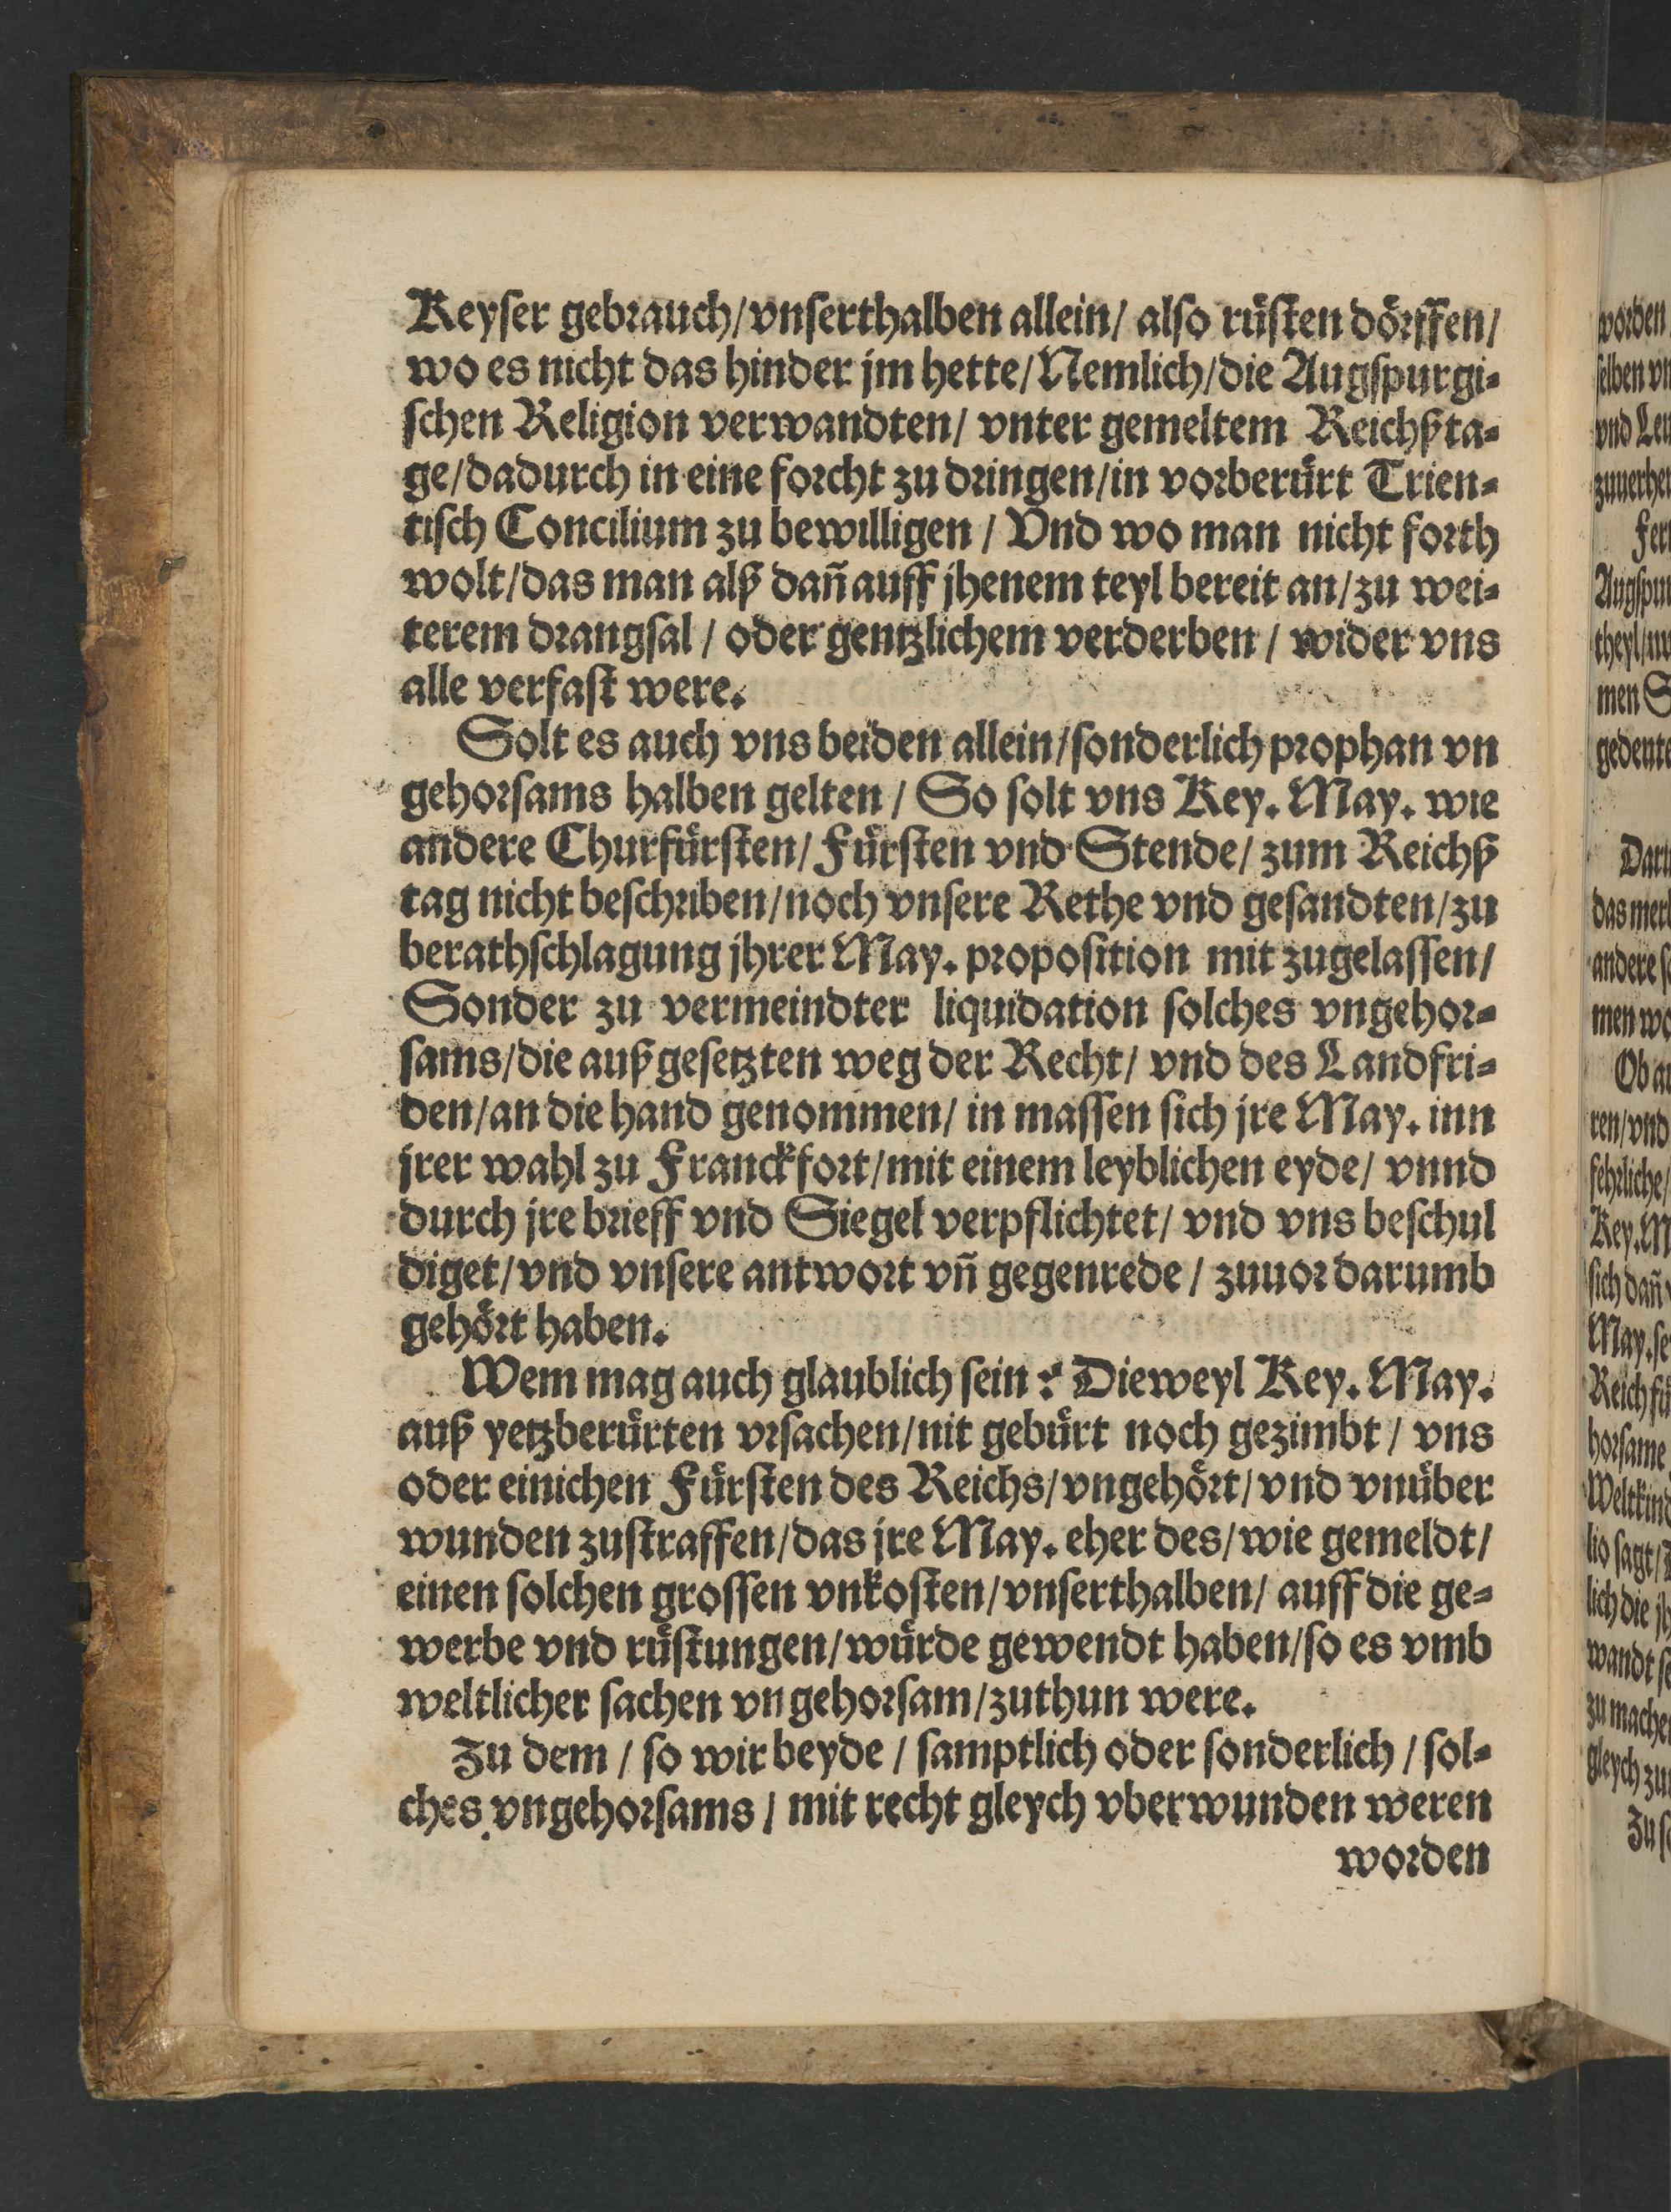 Keyser gebrauch/vnserthalben allein/ also rüsten dörffen/
wo es nicht das hinder jm hette/Nemlich/die Augspurgi-
schen Religion verwandten/ vnter gemeltem Reichßta-
ge/dadurch in eine forcht zu dringen/in vorberürt Trien-
tisch Concilium zu bewilligen / Vnd wo man nicht forth
wolt/das man alß dañ auff jhenem teyl bereit an/zu wei-
terem drangsal / oder gentzlichem verderben / wider vns
alle verfast were.
Solt es auch vns beiden allein/sonderlich prophan vn
gehorsams halben gelten / So solt vns Key. May. wie
andere Churfürsten/ Fürsten vnd Stende/ zum Reichß
tag nicht beschriben/noch vnsere Rethe vnd gesandten/zu
berathschlagung jhrer May. proposition mit zugelassen/
Sonder zu vermeindter liquidation solches vngehor-
sams/die außgesetzten weg der Recht/ vnd des Landfri-
den/an die hand genommen/ in massen sich jre May. inn
jrer wahl zu Franckfort/mit einem leyblichen eyde/ vnnd
durch jre brieff vnd Siegel verpflichtet/ vnd vns beschul
diget/vnd vnsere antwort vñ gegenrede / zuuor darumb
gehört haben.
Wem mag auch glaublich sein? Dieweyl Key. May.
auß yetzberürten vrsachen/nit gebürt noch gezimbt / vns
oder einichen Fürsten des Reichs/vngehört/vnd vnüber
wunden zustraffen/das jre May. eher des/wie gemeldt/
einen solchen grossen vnkosten/vnserthalben/ auff die ge-
werbe vnd rüstungen/würde gewendt haben/so es vmb
weltlicher sachen vngehorsam/zuthun were.
Zu dem / so wir beyde / samptlich oder sonderlich / sol-
ches vngehorsams / mit recht gleych vberwunden weren
worden
worden
selben vn
vnd Leu
zuuerhe
Fer
Augspu
theyl/nu
men S
gedent
Dar
das mer
andere s
men wo
Ob a
ren/vnd
fehrliche/
Key. M
sich dañ
May. se
Reich fü
horsame
Weltkind
lio sagt/
lich die jh
wandt s
zu mache
gleych zu
Zu s